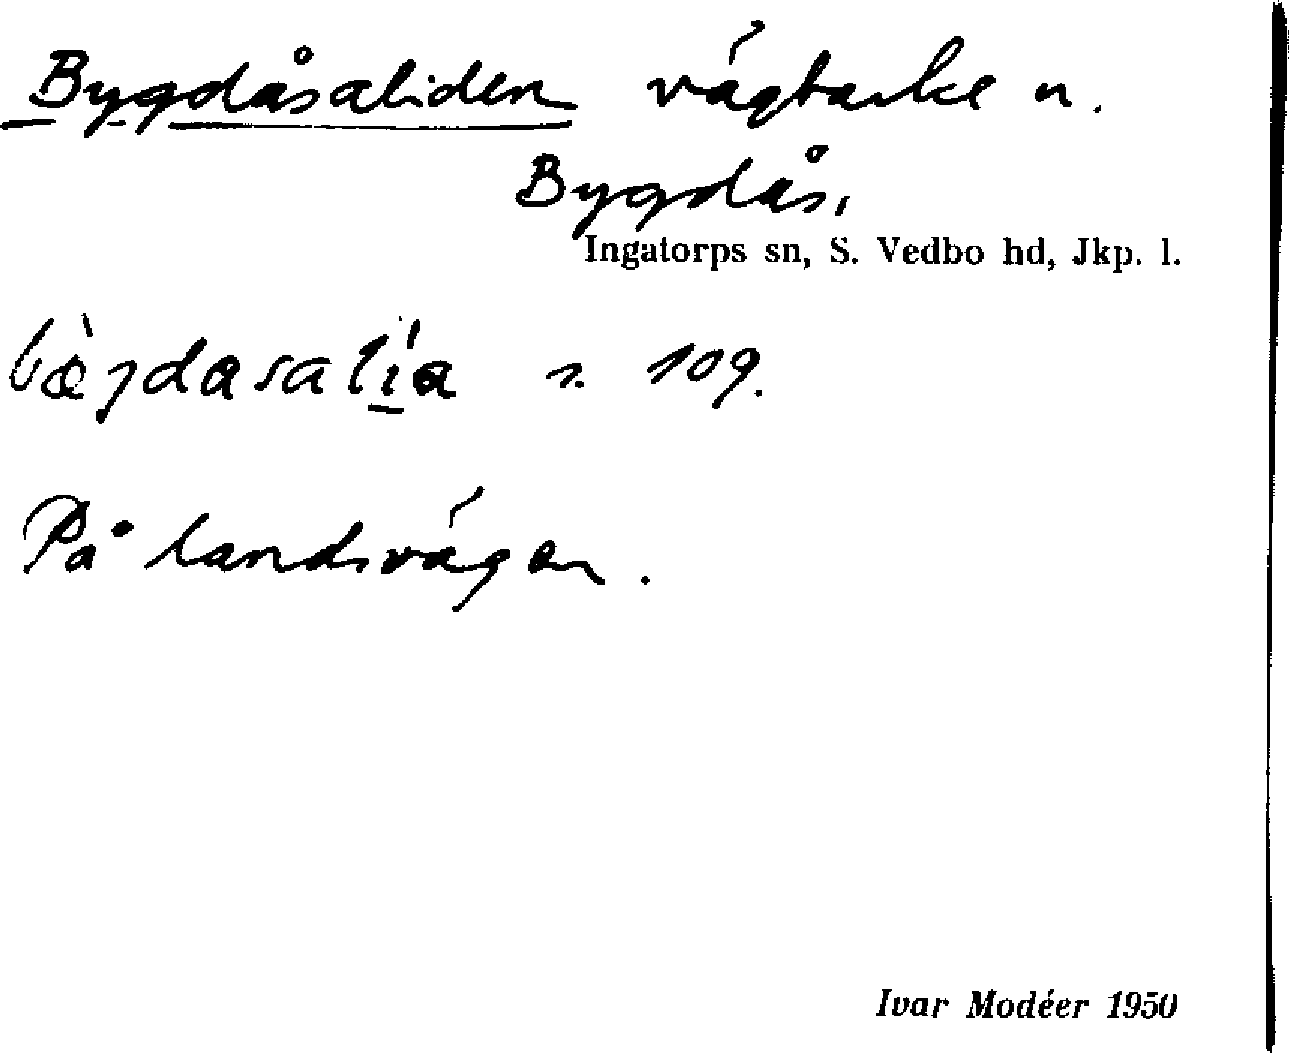 Bygdåsaliden vägbacke n.
Bygdås,
Ingatorps sn, S. Vedbo hd, Jkp. l.
bæ̀jdasalia s. 109.
På landsvägen.
Ivar Modéer 1950